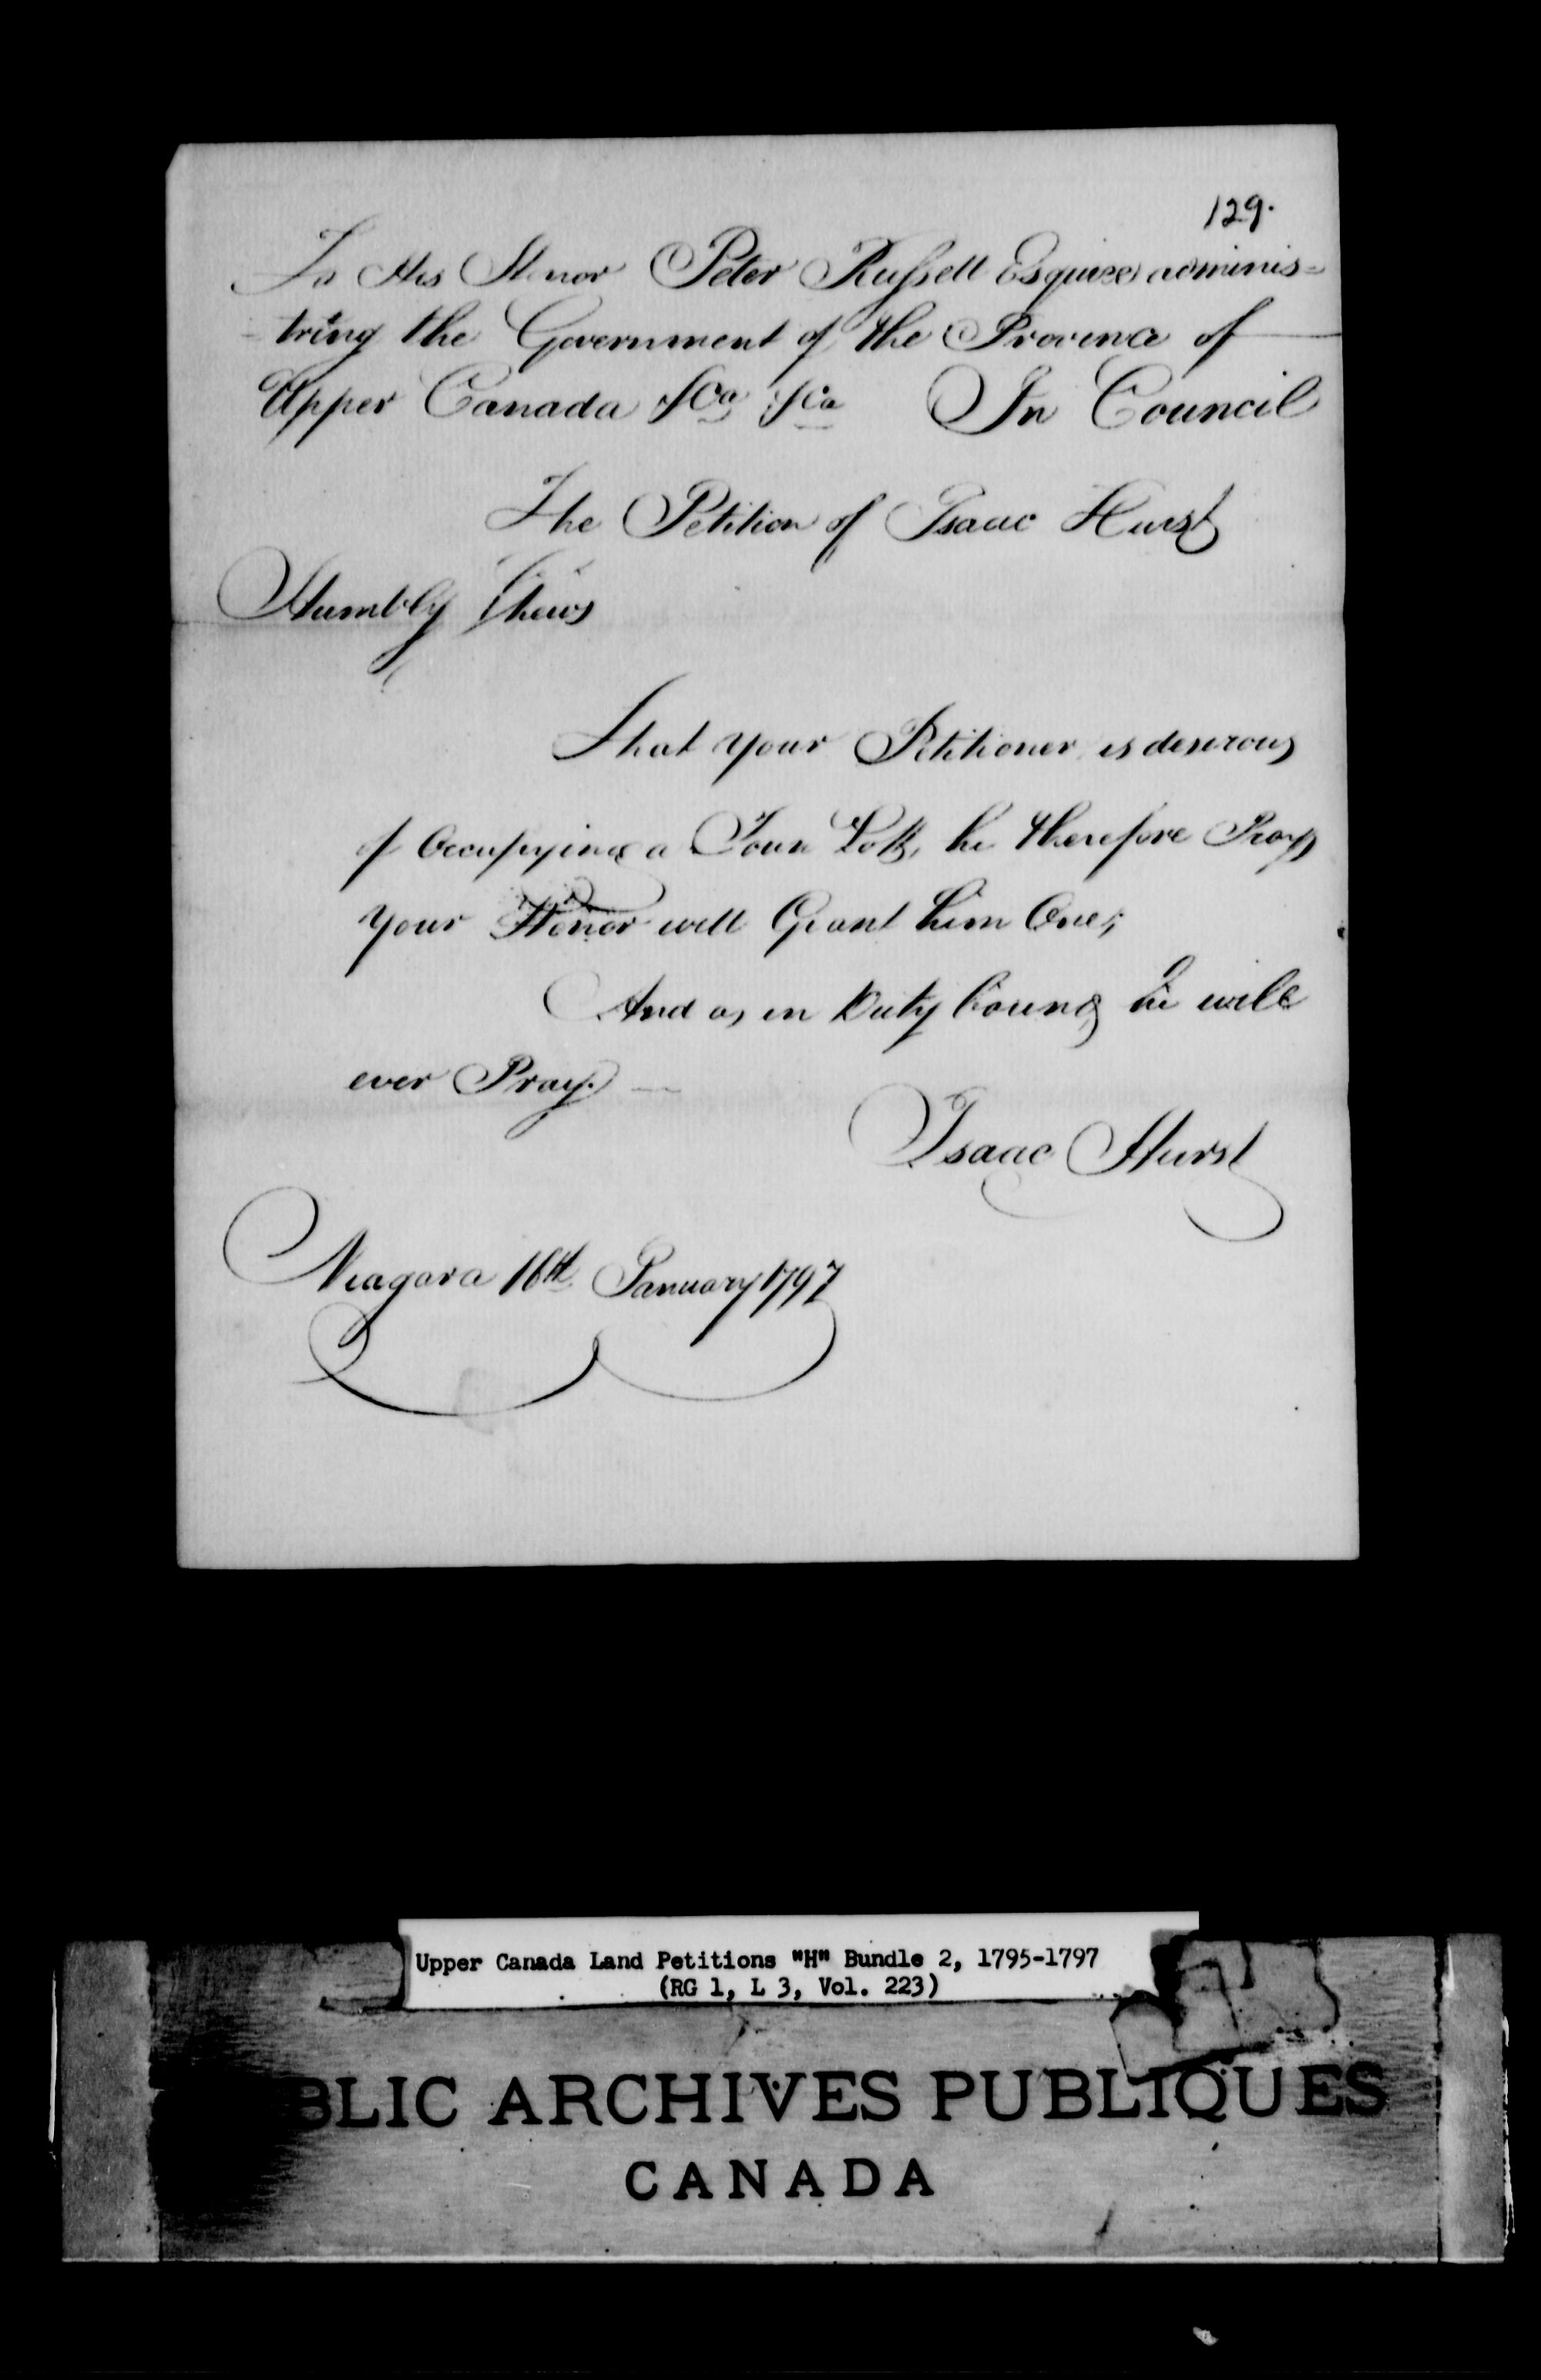 129.
To His Honor Peter Russell Esquire adminis=
-tring the Government of the Province of
Upper Canada &ca &ca In Council
The Petition of Isaac Hurst
Humbly Shews
That your Petitioner is desirous
of Occupying a Town Lott, he therefore Prays
your Honor will Grant him One;
And as in Duty bound he will
ever Pray. —
Isaac Hurst
Niagara 16th January 1797
Upper Canada Land Petitions "H" Bundle 2, 1795-1797
(RG 1, L 3, Vol. 223)
BLIC ARCHIVES PUBLIQUES
CANADA